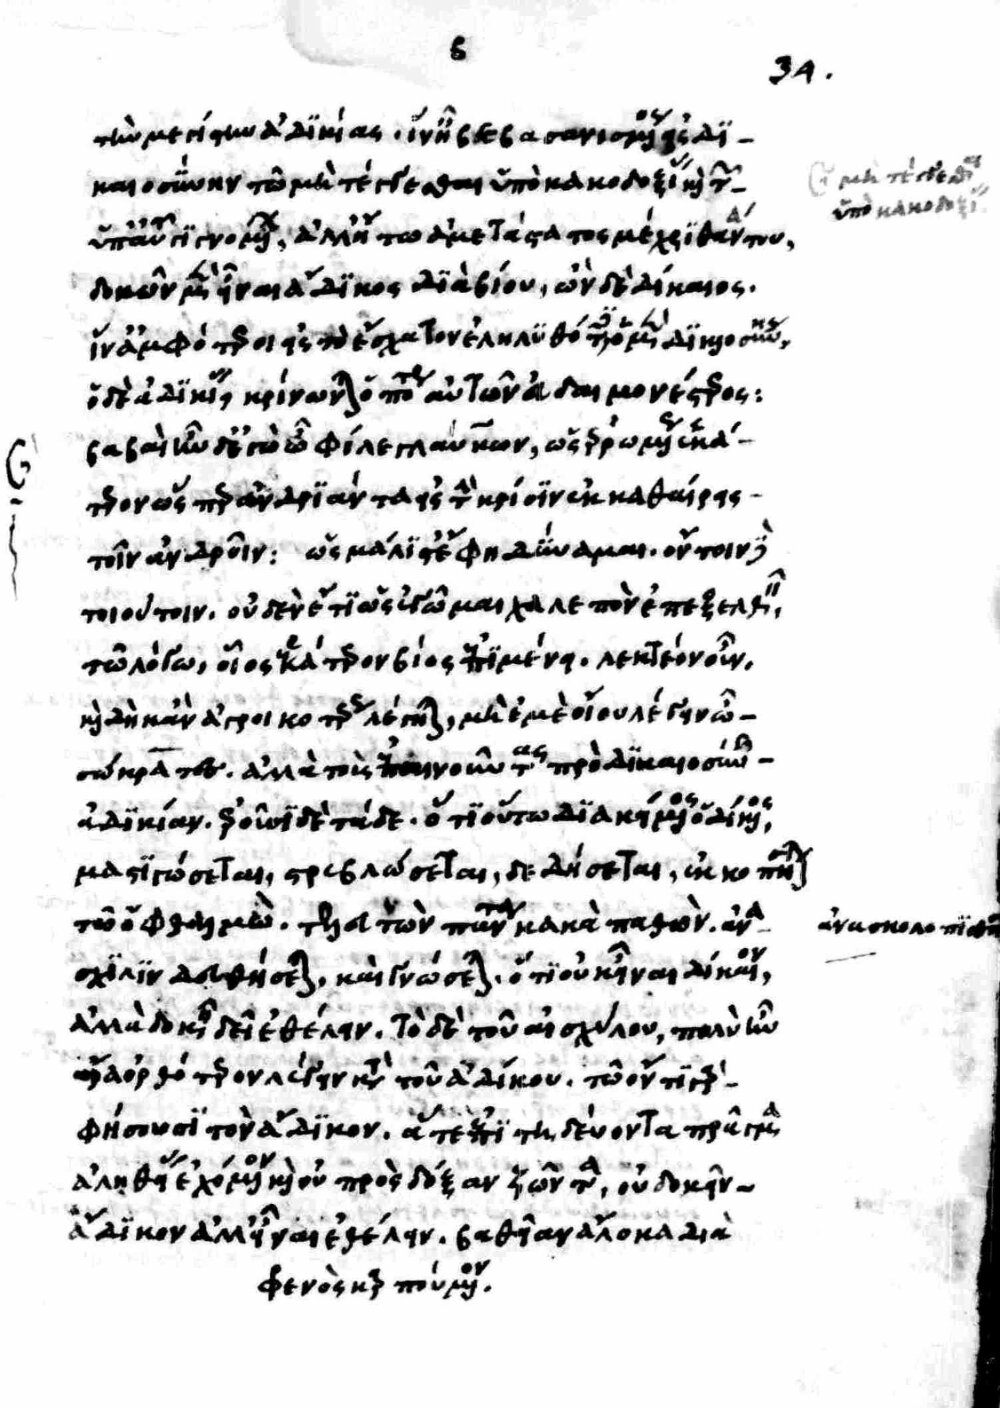 β
34.
τὴν μεγίστην ἀδικίας. ἵν' ᾖ βεβασανισμένος εἰς δι-
καιοσύνην τῷ μὴ τέγγεσθαι ὑπὸ κακοδοξίας καὶ τῶν
ὑπ' αὐτῆς γινομένων, ἀλλ' ἤτω ἀμετάστατος μέχρι θανάτου,
δοκῶν μὲν εἶναι ἄδικος διὰ βίου, ὢν δὲ δίκαιος.
ἵν' ἀμφότεροι εἰς τὸ ἔσχατον ἐληλυθότες ὁ μὲν δικαιοσύνης,
ὁ δὲ ἀδικίας, κρίνωνται ὁπότερος αὐτῶν εὐδαιμονέστερος:
βαβαὶ ἦν δ' ἐγὼ ὦ φίλε γλαύκων, ὡς ἐρρωμένως ἑκά-
τερον ὥσπερ ἀνδριάντα εἰς τὴν κρίσιν ἐκκαθαίρεις
τοῖν ἀνδροῖν: ὡς μάλιστ' ἔφη δύναμαι. ὄντοιν δὲ
τοιούτοιν. οὐδὲν ἔτι ὡς ἐγῶμαι χαλεπὸν ἐπεξελθεῖν
τῷ λόγῳ, οἷος ἑκάτερον βίος ἐπιμένει. λεκτέον οὖν,
καὶ δὴ κἂν ἀγροικοτέρως λέγηται, μὴ ἐμὲ οἴου λέγειν ὦ
σώκρατες. ἀλλὰ τοὺς ἐπαινοῦντας πρὸ δικαιοσύνης
ἀδικίαν. ἐροῦσι δὲ τάδε. ὅτι οὕτω διακείμενος ὁ δίκαιος,
μαστιγώσεται, στρεβλώσεται, δεδήσεται, ἐκκοπήσεται
τὼ ὀφθαλμώ. τελευτῶν πάντα κακὰ παθὼν. ἀνα-
σχινδυλευθήσεται, καὶ γνώσεται. ὅτι οὐκ εἶναι δίκαιον,
ἀλλὰ δοκεῖν δεῖ ἐθέλειν. τὸ δὲ τοῦ αἰσχύλου, πολὺ ἦν
ἄρα ὀρθότερον λέγειν κατὰ τοῦ ἀδίκου. τῷ ὄντι γὰρ
φήσουσι τὸν ἄδικον. ἅτε ἐπιτηδεύοντα πρᾶγμα
ἀληθείας ἐχόμενον καὶ οὐ πρὸς δόξαν ζῶντα, οὐ δοκεῖν
ἄδικον ἀλλ' εἶναι ἐθέλειν. βαθεῖαν ἄλοκα διὰ
φρενὸς καρπούμενον.
μὴ τέγγεσθαι
ὑπὸ κακοδοξίας
ἀνασκολοπισθή